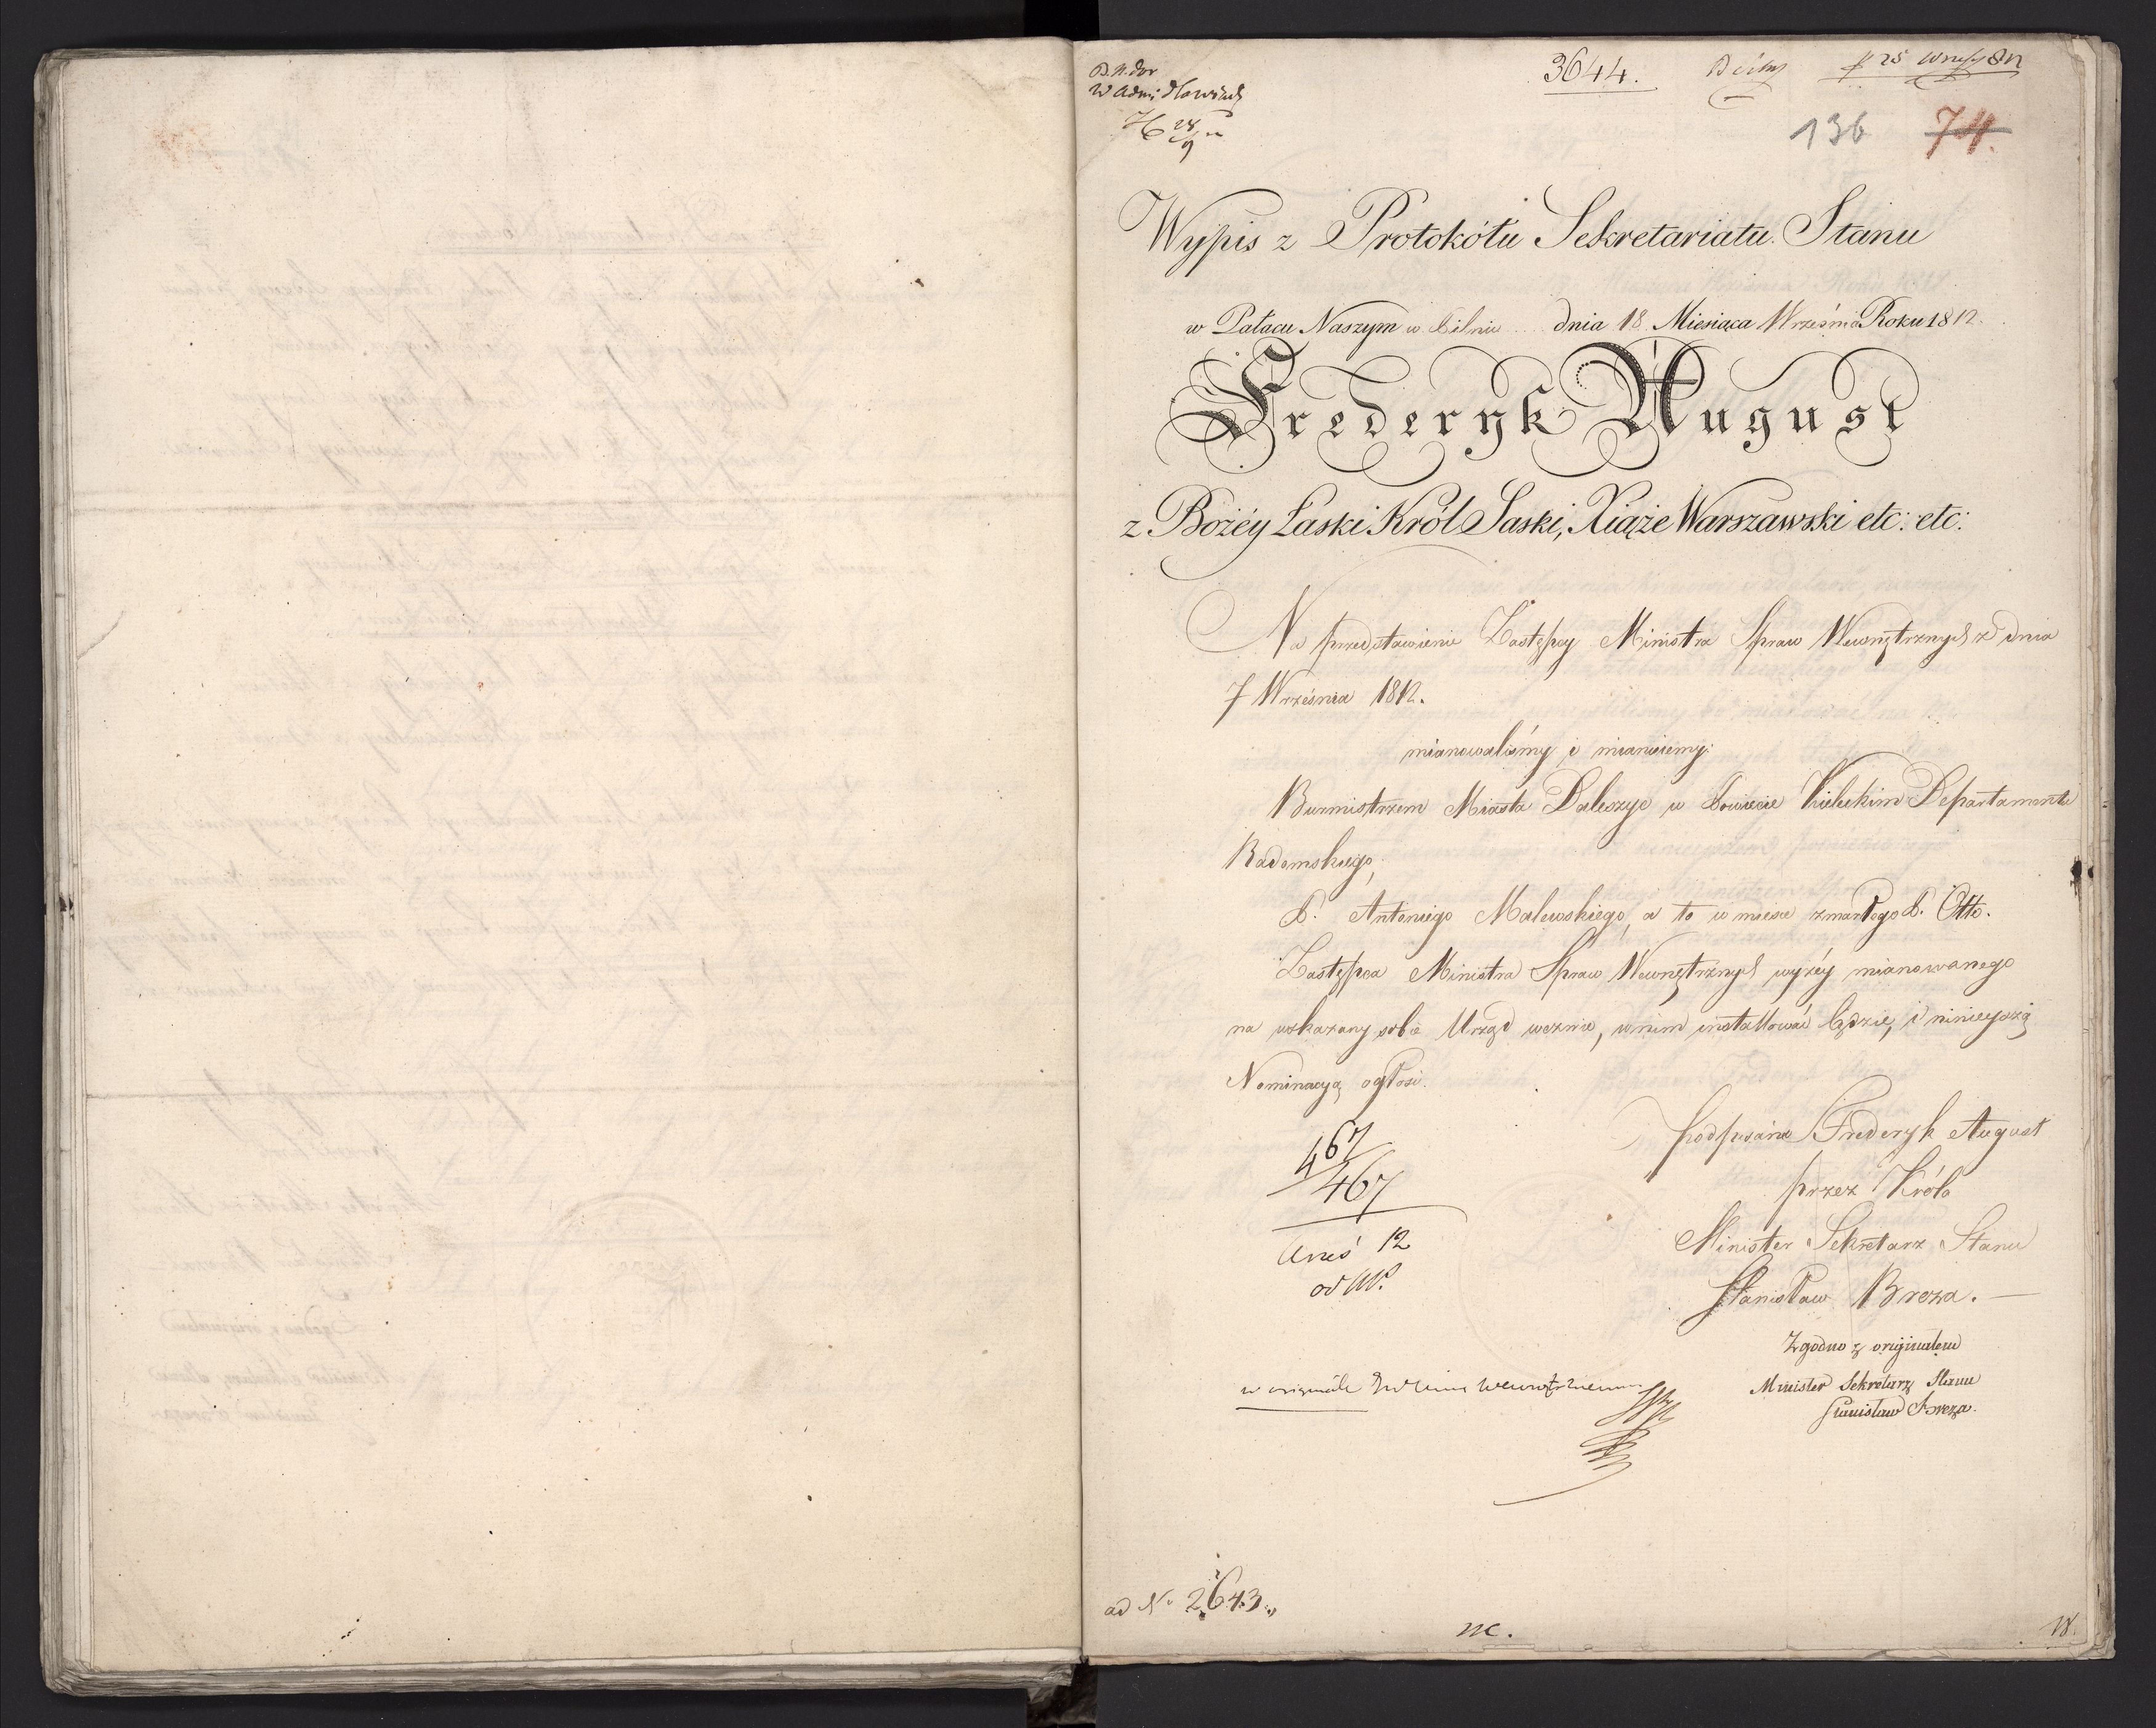 3644.
136 74.
Wypis z Protokółu Sekretariatu Stanu
w Pałacu Naszym w Pilnic dnia 18 Miesiąca Września Roku 1812.
Frederyk August
z Bożéy Łaski Król Saski, Xiąże Warszawski etc: etc:
Na przedstawienie Zastępcy Ministra Spraw Wewnętrznych z dnia
7 Września 1812.
mianowaliśmy i mianuiemy:
Burmistrzem Miasta Daleszyc w Powiecie Kieleckim Departamentu
Radomskiego,
P. Antoniego Malewskiego, a to w mieisce zmarłego P. Otto.
Zastępca Ministra Spraw Wewnętrznych wyżéy mianowanego
na wskazany sobie Urząd wezwie, w nim installować będzie, i ninieyszą
Nominacyą ogłosi.
podpisano Frederyk August
przez Króla
Minister Sekretarz Stanu
Stanisław Breza.
467
467
Zgodno z originałem
Minister Sekretarz Stanu
Stanisław Breza.
ad No 2643.